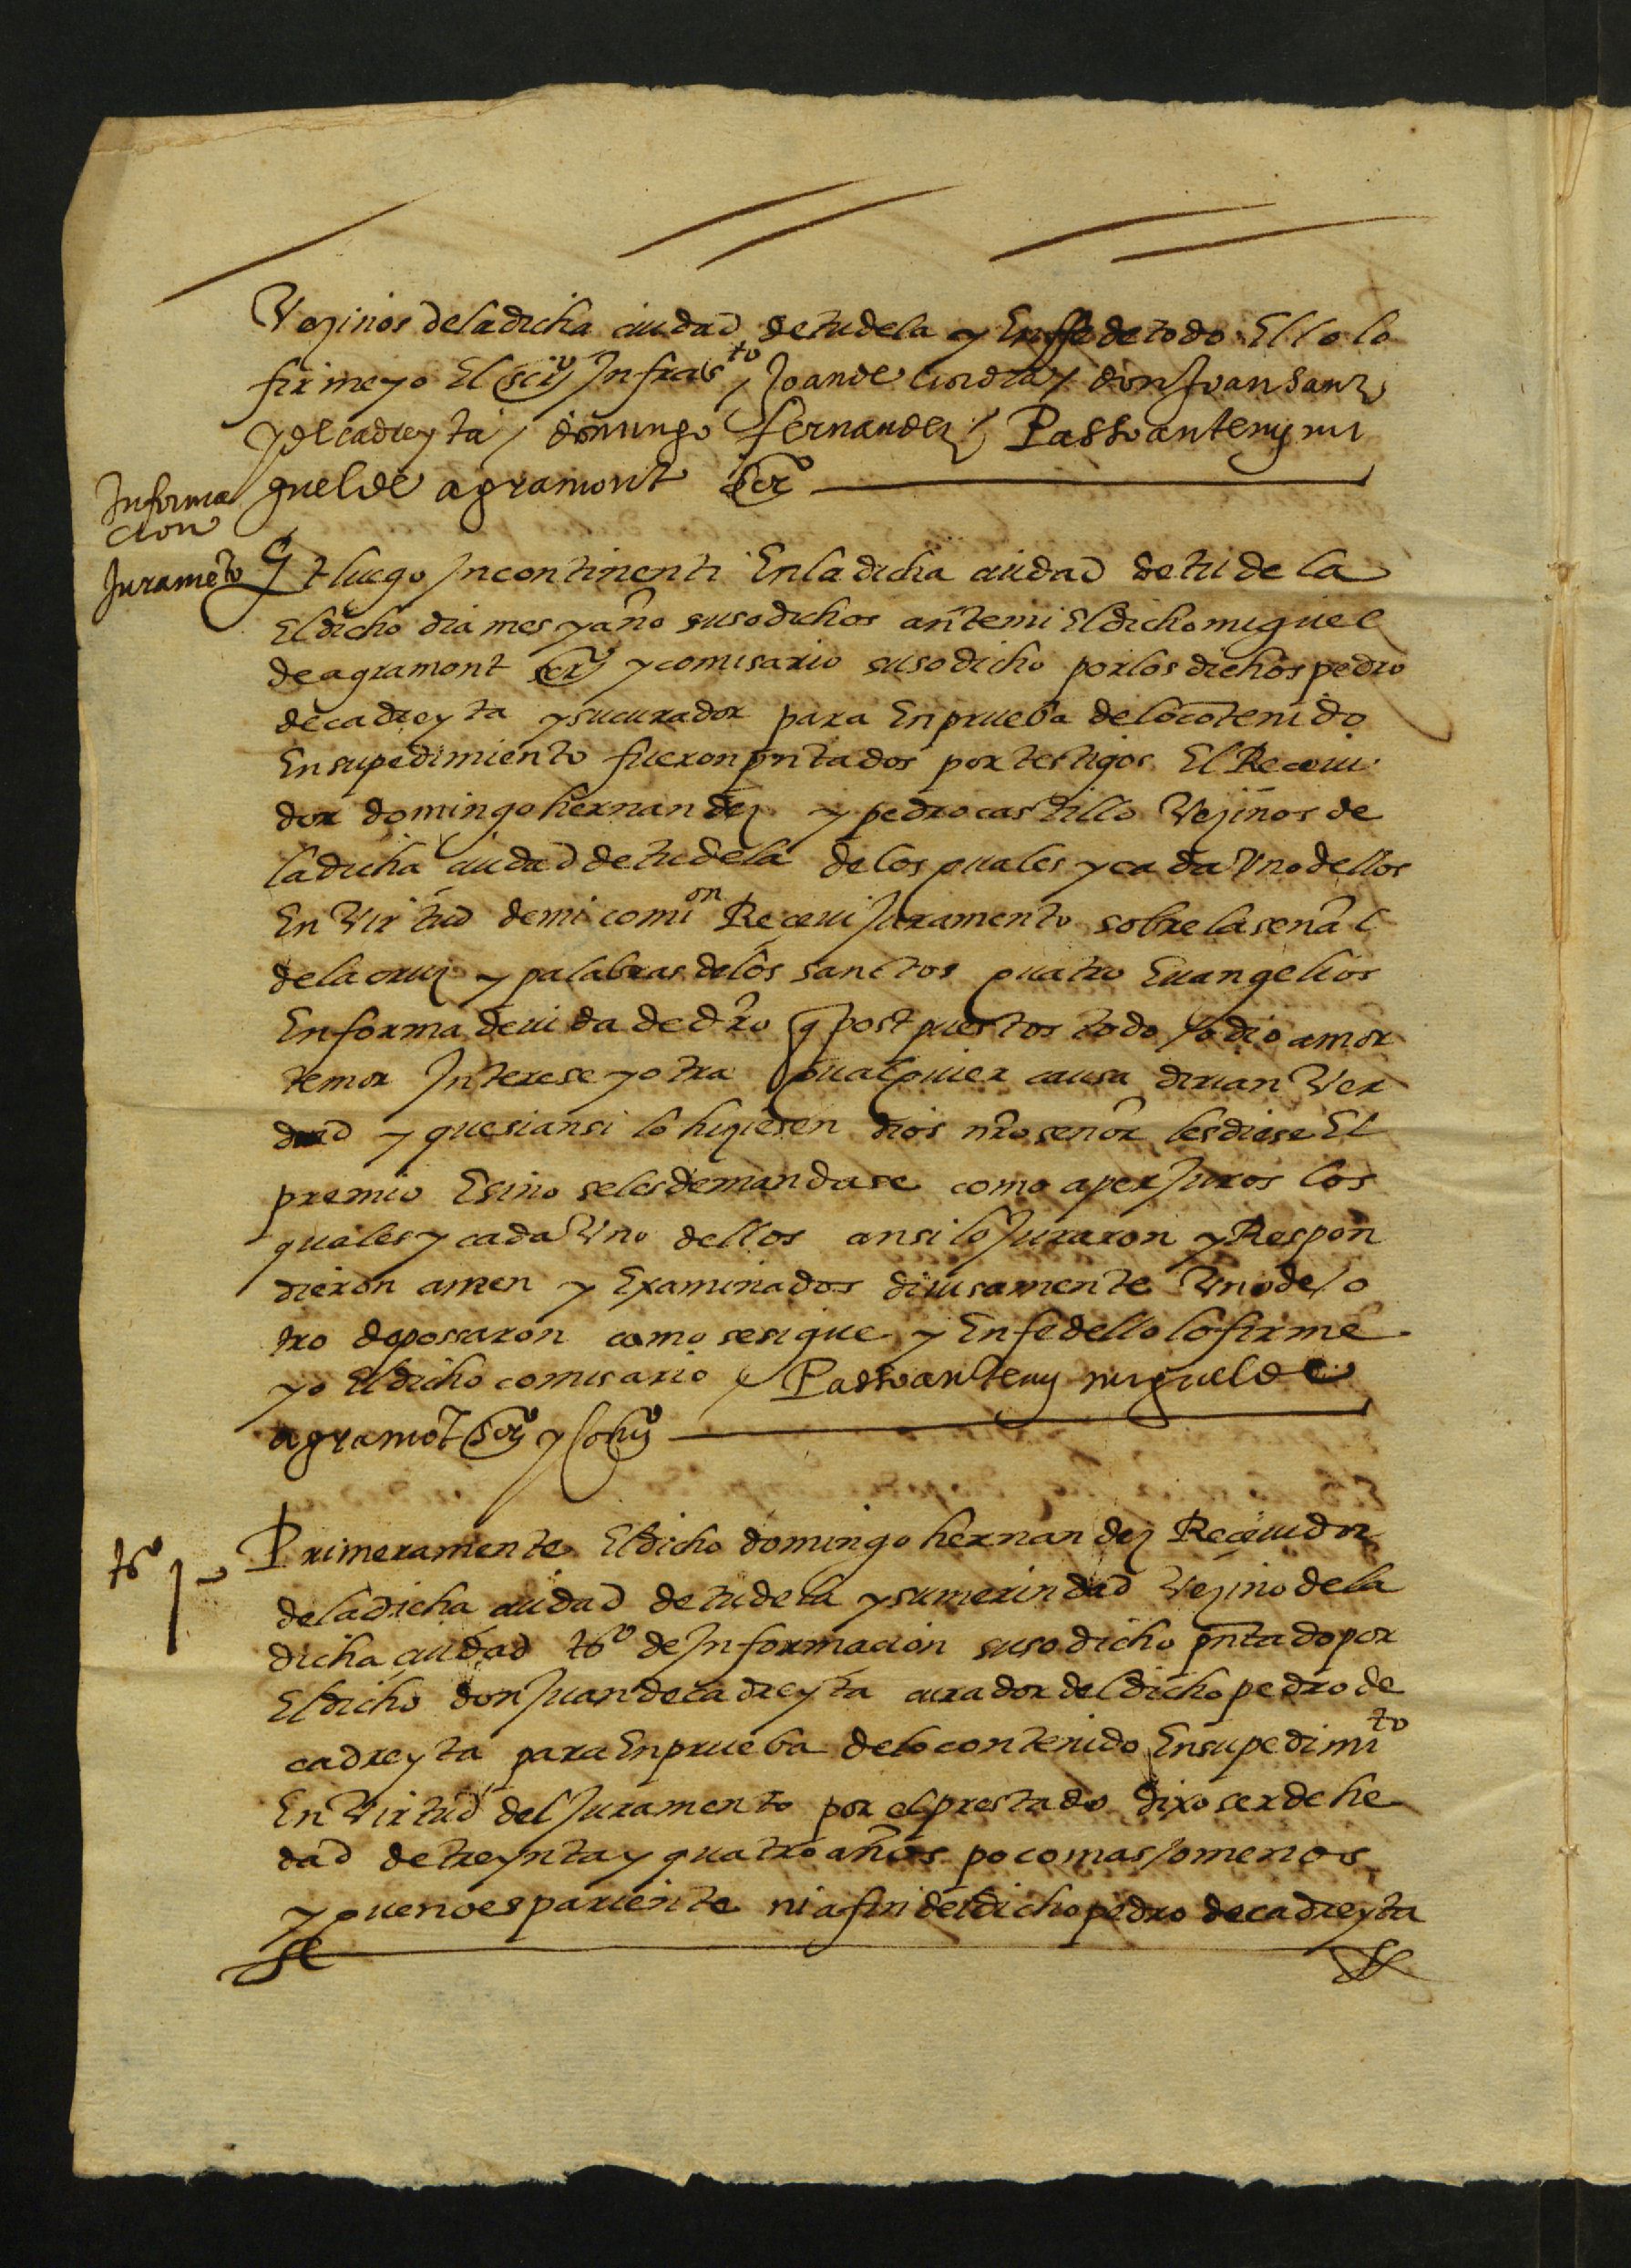 Vezinos de la dicha ciudad de tudela y En ffe de todo Ello lo
firme yo El scrº Infrasto Joan de Ciordia don Juan Sanz
y de cadreyta domingo fernandez Passo ante my mi
guel de agramont scrº
Informa
cion
Jurameto
E luego Incontinenti En la dicha ciudad de tudela
El dicho dia mes y año susodichos ante mi El dicho miguel
de agramont scrº y comisario susodicho por los dichos pedro
de cadreyta y su curador para En prueba de lo cotenido
En su pedimiento fueron pntados por testigos El Receui
dor domingo hernandez y pedro castillo Vezinos de
la dicha ciudad de tudela de los quales y cada Vno dellos
En Virtud de mi comion Receui Juramento sobre la señal
de la cruz y palabras de los sanctos quatro Euangelios
En forma deuida de dro q post puestos todo odio amor
temor Interese y otra qualquier causa dirian Ver
dad y que si ansi lo hiziesen dios nro señor les diese El
premio E sino se les demandase como a perJuros los
quales y cada Vno dellos ansi lo Juraron y Respon
dieron amen y Examinados diuisamente Vno de o
tro deposaron como se sigue y En fe dello lo firme
yo El dicho comisario Passo ante my miguel de
agramot scrº y comº
tgº 1º
Primeramente El dicho domingo hernandez Receuidor
de la dicha ciudad de tudela y su merindad Vezino de la
dicha ciudad tgº de Informacion susodicho pntado por
El dicho don Juan de cadreyta curador del dicho pedro de
cadreyta para En prueba de lo contenido En su pedimito
En Virtud del Juramento por el prestado dixo ser de he
dad de treynta y quatro años poco mas o menos
y que no es pariente ni afin del dicho pedro de cadreyta